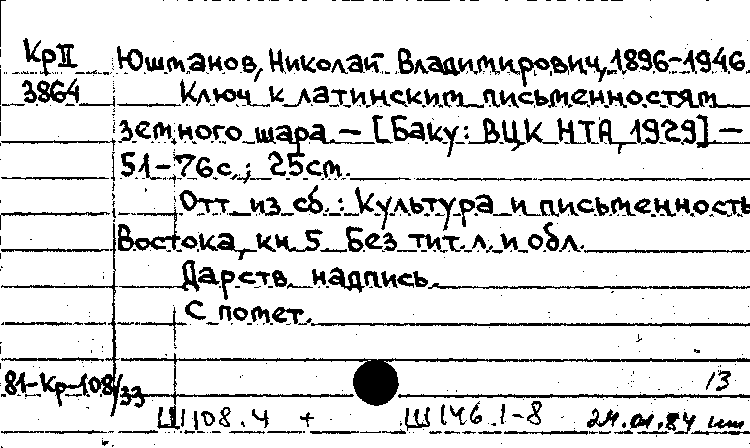 КрII Юшманов, Николай Владимирович, 1896-1946.
3864 Ключ к латинским письменностям
земного шара. — [Баку: ВЦК НТА, 1929]. —
51-76с.; 25см.
Отт. из сб.: Культура и письменность
Востока, кн. 5. Без тит. л. и обл.
Дарств. надпись.
С помет.
81-Кр-108/33 13
Ш108.4 + Ш146.1-8 24.01.84